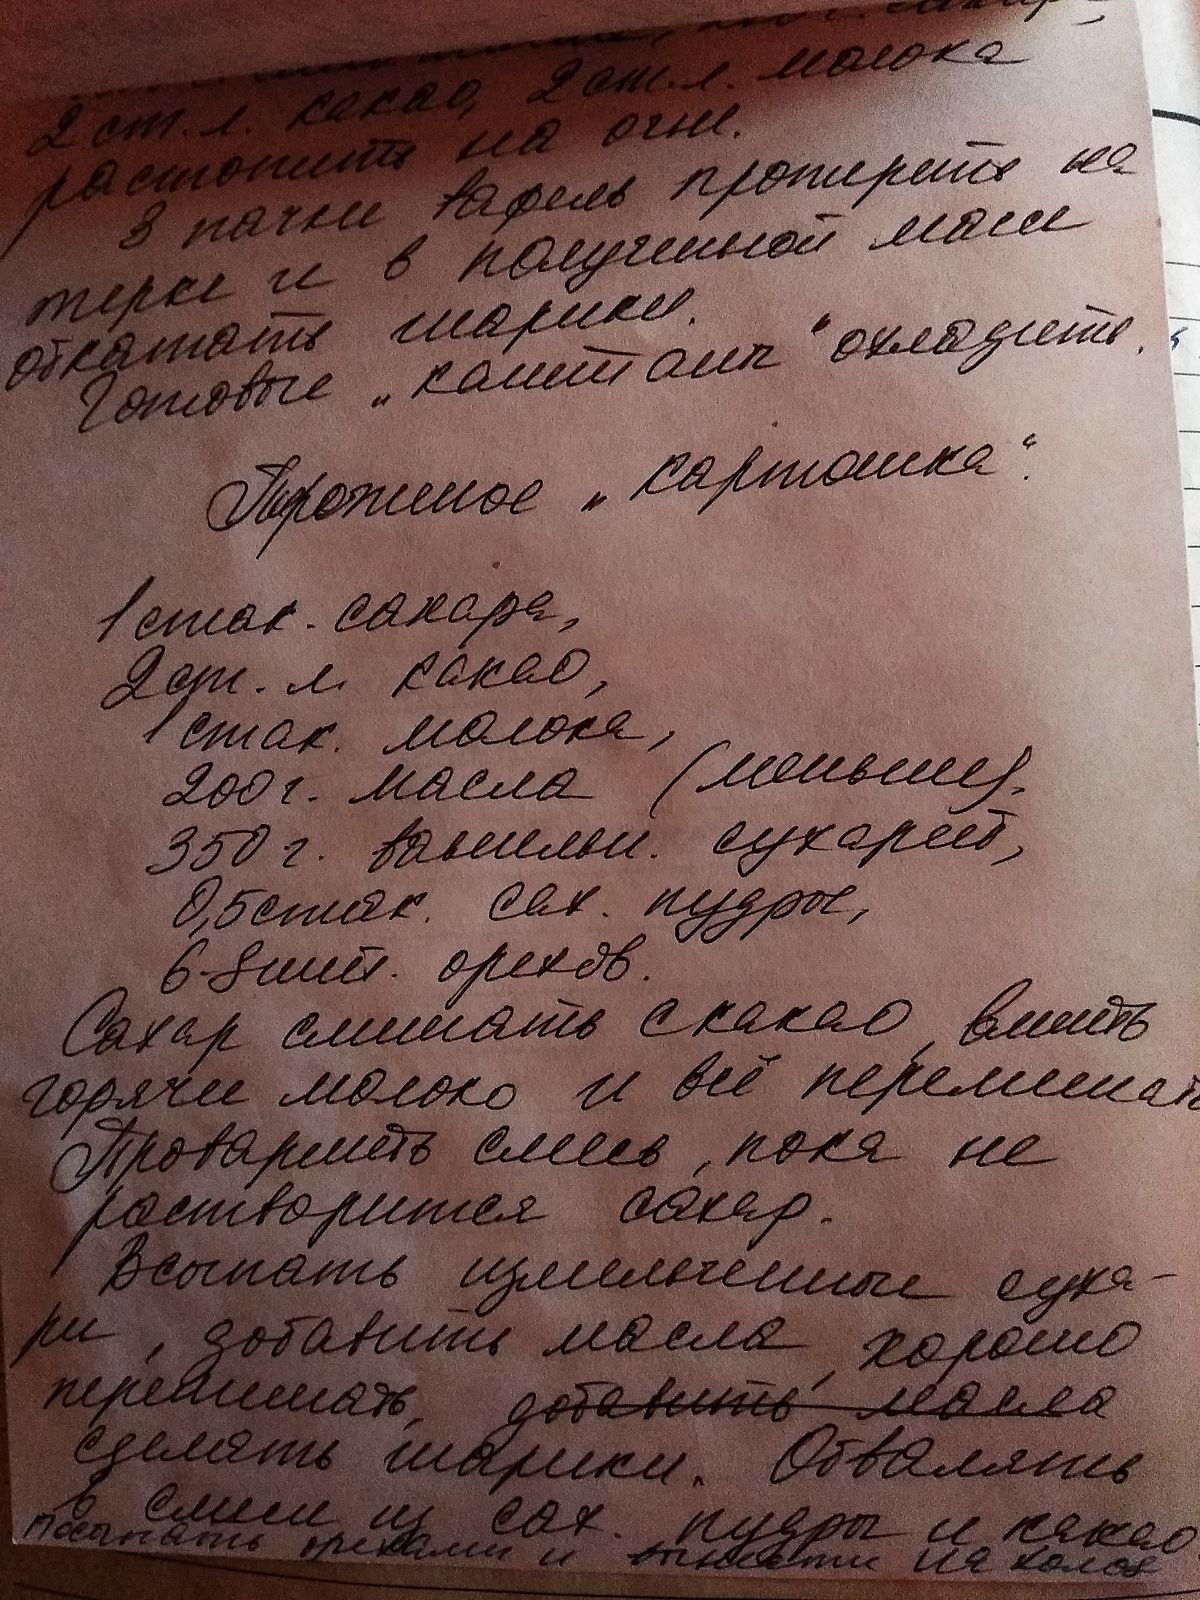 200 г. сахара,
2 ст. л. какао, 2 ст. л. молока
растопить на огне.
3 пачки вафель протереть на
терке и в полученной массе
обкатать шарики.
Готовые „каштаны“ охладить.
Пирожное „картошка“.
1 стак. сахара,
2 ст. л. какао,
1 стак. молока,
200 г. масла (меньше).
350 г. ванильн. сухарей,
0,5 стак. сах. пудры,
6-8 шт. орехов.
Сахар смешать с какао, влить
горячее молоко и всё перемешать
Проварить смесь, пока не
растворится сахар.
Всыпать измельченные суха-
ри, добавить масла, хорошо
перемешать, добавить масла
сделать шарики. Обвалять
в смеси из сах. пудры и какао
посыпать орехами и вынести на холод